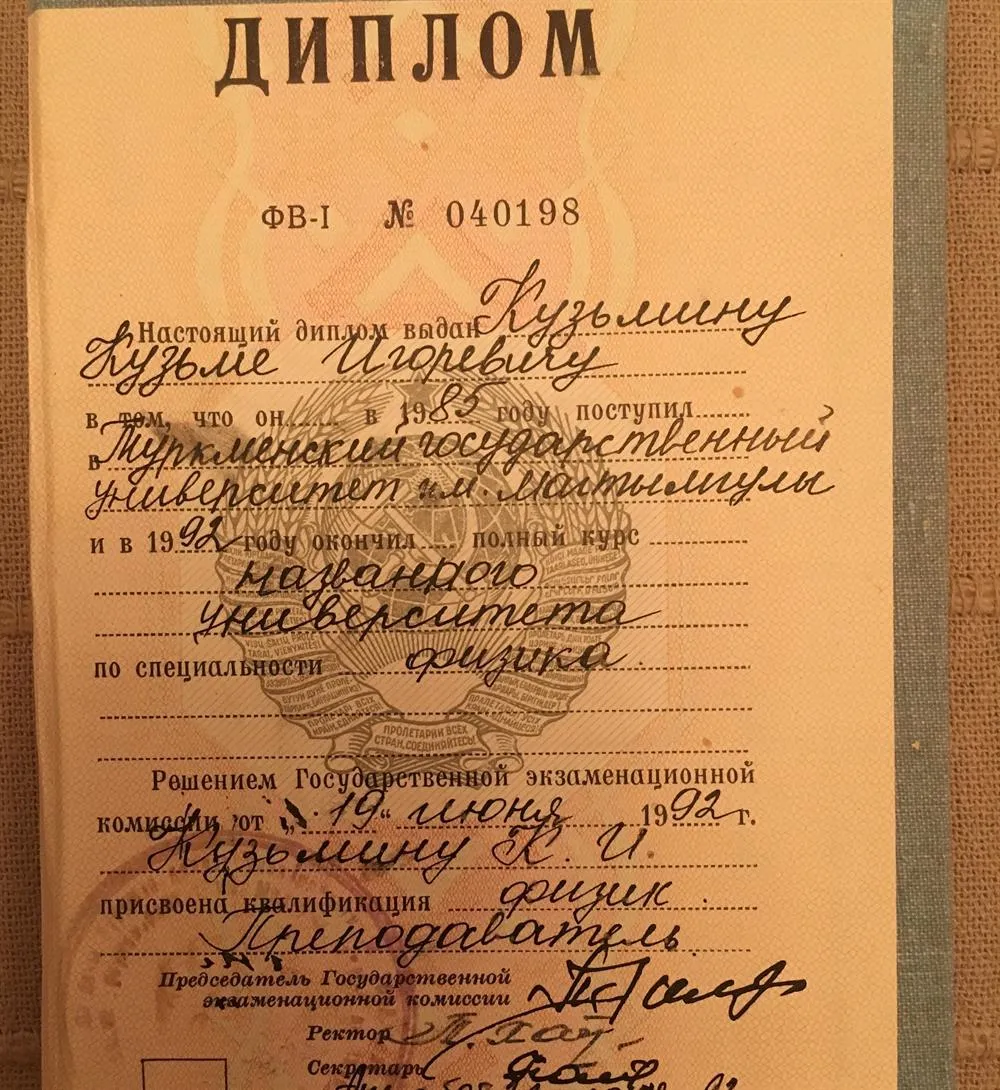 ДИПЛОМ
ФВ-I № 040198
Настоящий диплом выдан Кузьмину
Кузьме Игоревичу
в том, что он в 1985 году поступил
в Туркменский государственный
университет им. Магтымгулы
и в 1992 году окончил полный курс
названного
университета
по специальности физика.
ПРОЛЕТАРИИ ВСЕХ
СТРАН, СОЕДИНЯЙТЕСЬ!
Решением Государственной экзаменационной
комиссии от „19“ июня 1992 г.
Кузьмину К. И.
присвоена квалификация физик.
Преподаватель
Председатель Государственной
экзаменационной комиссии
Ректор
Секретарь